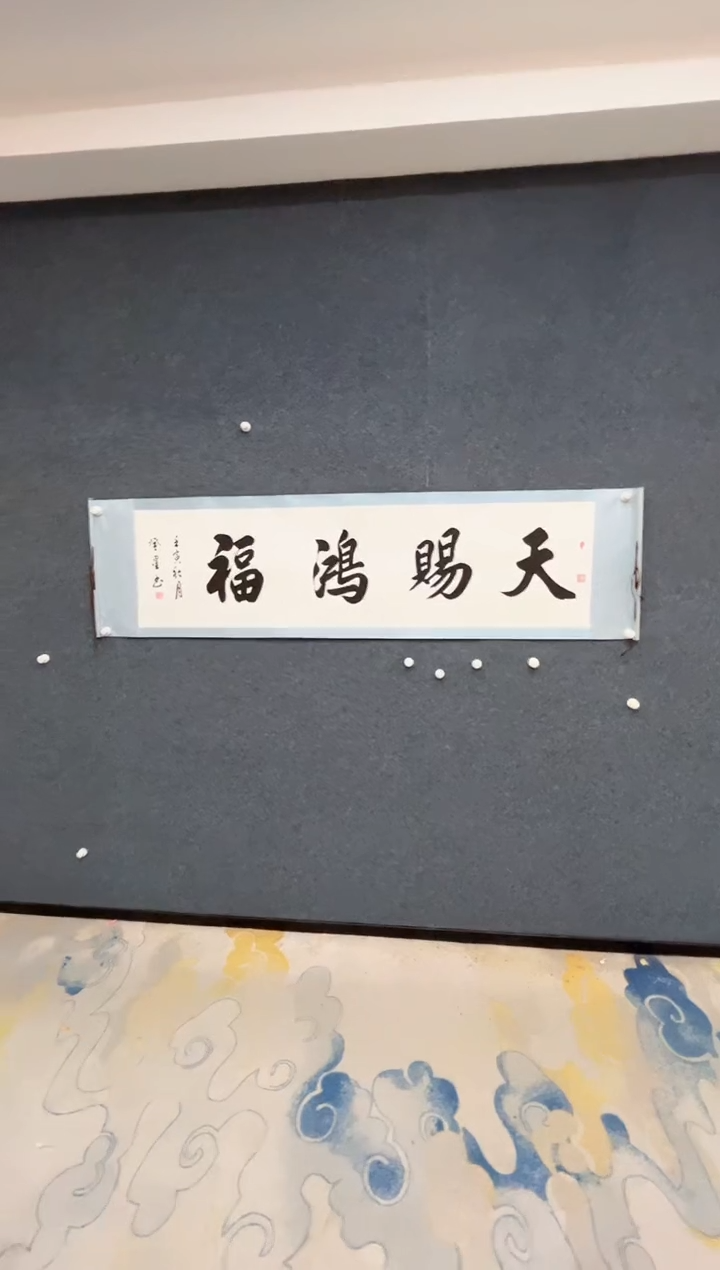 天賜鴻福
壬寅秋月